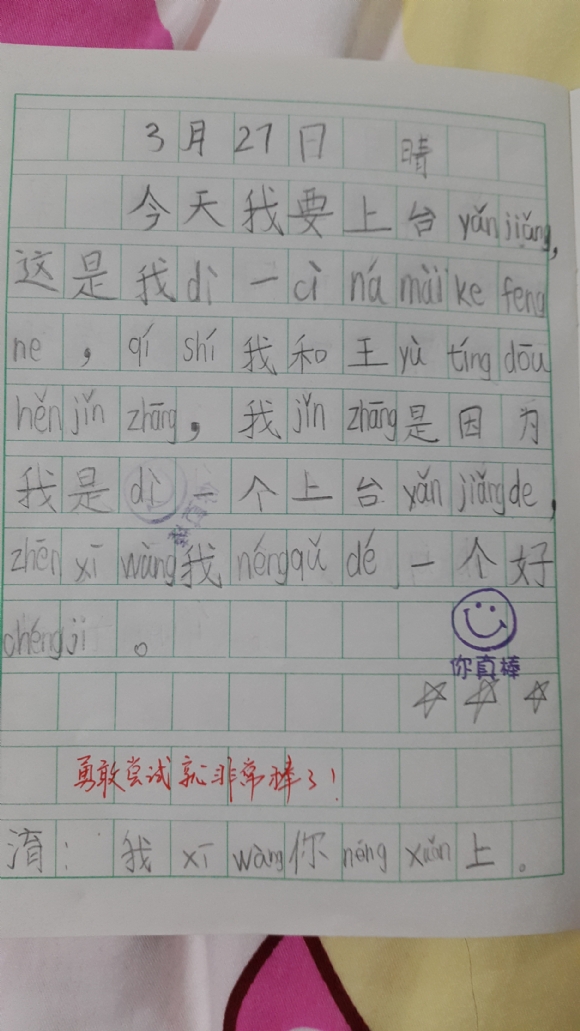 3月27日 晴
今天我要上台yǎnjiǎng，
这是我dì一cì ná mài ke feng
ne，qí shí 我和王yù tíng dōu
hěn jǐn zhāng，我jǐn zhāng是因为
我是dì一个上台yǎn jiǎng de，
zhēn xī wàng我néng qǔ dé一个好
chéng jì。
你真棒
勇敢尝试就非常棒了！
淯：我xī wàng你néng xuǎn上。